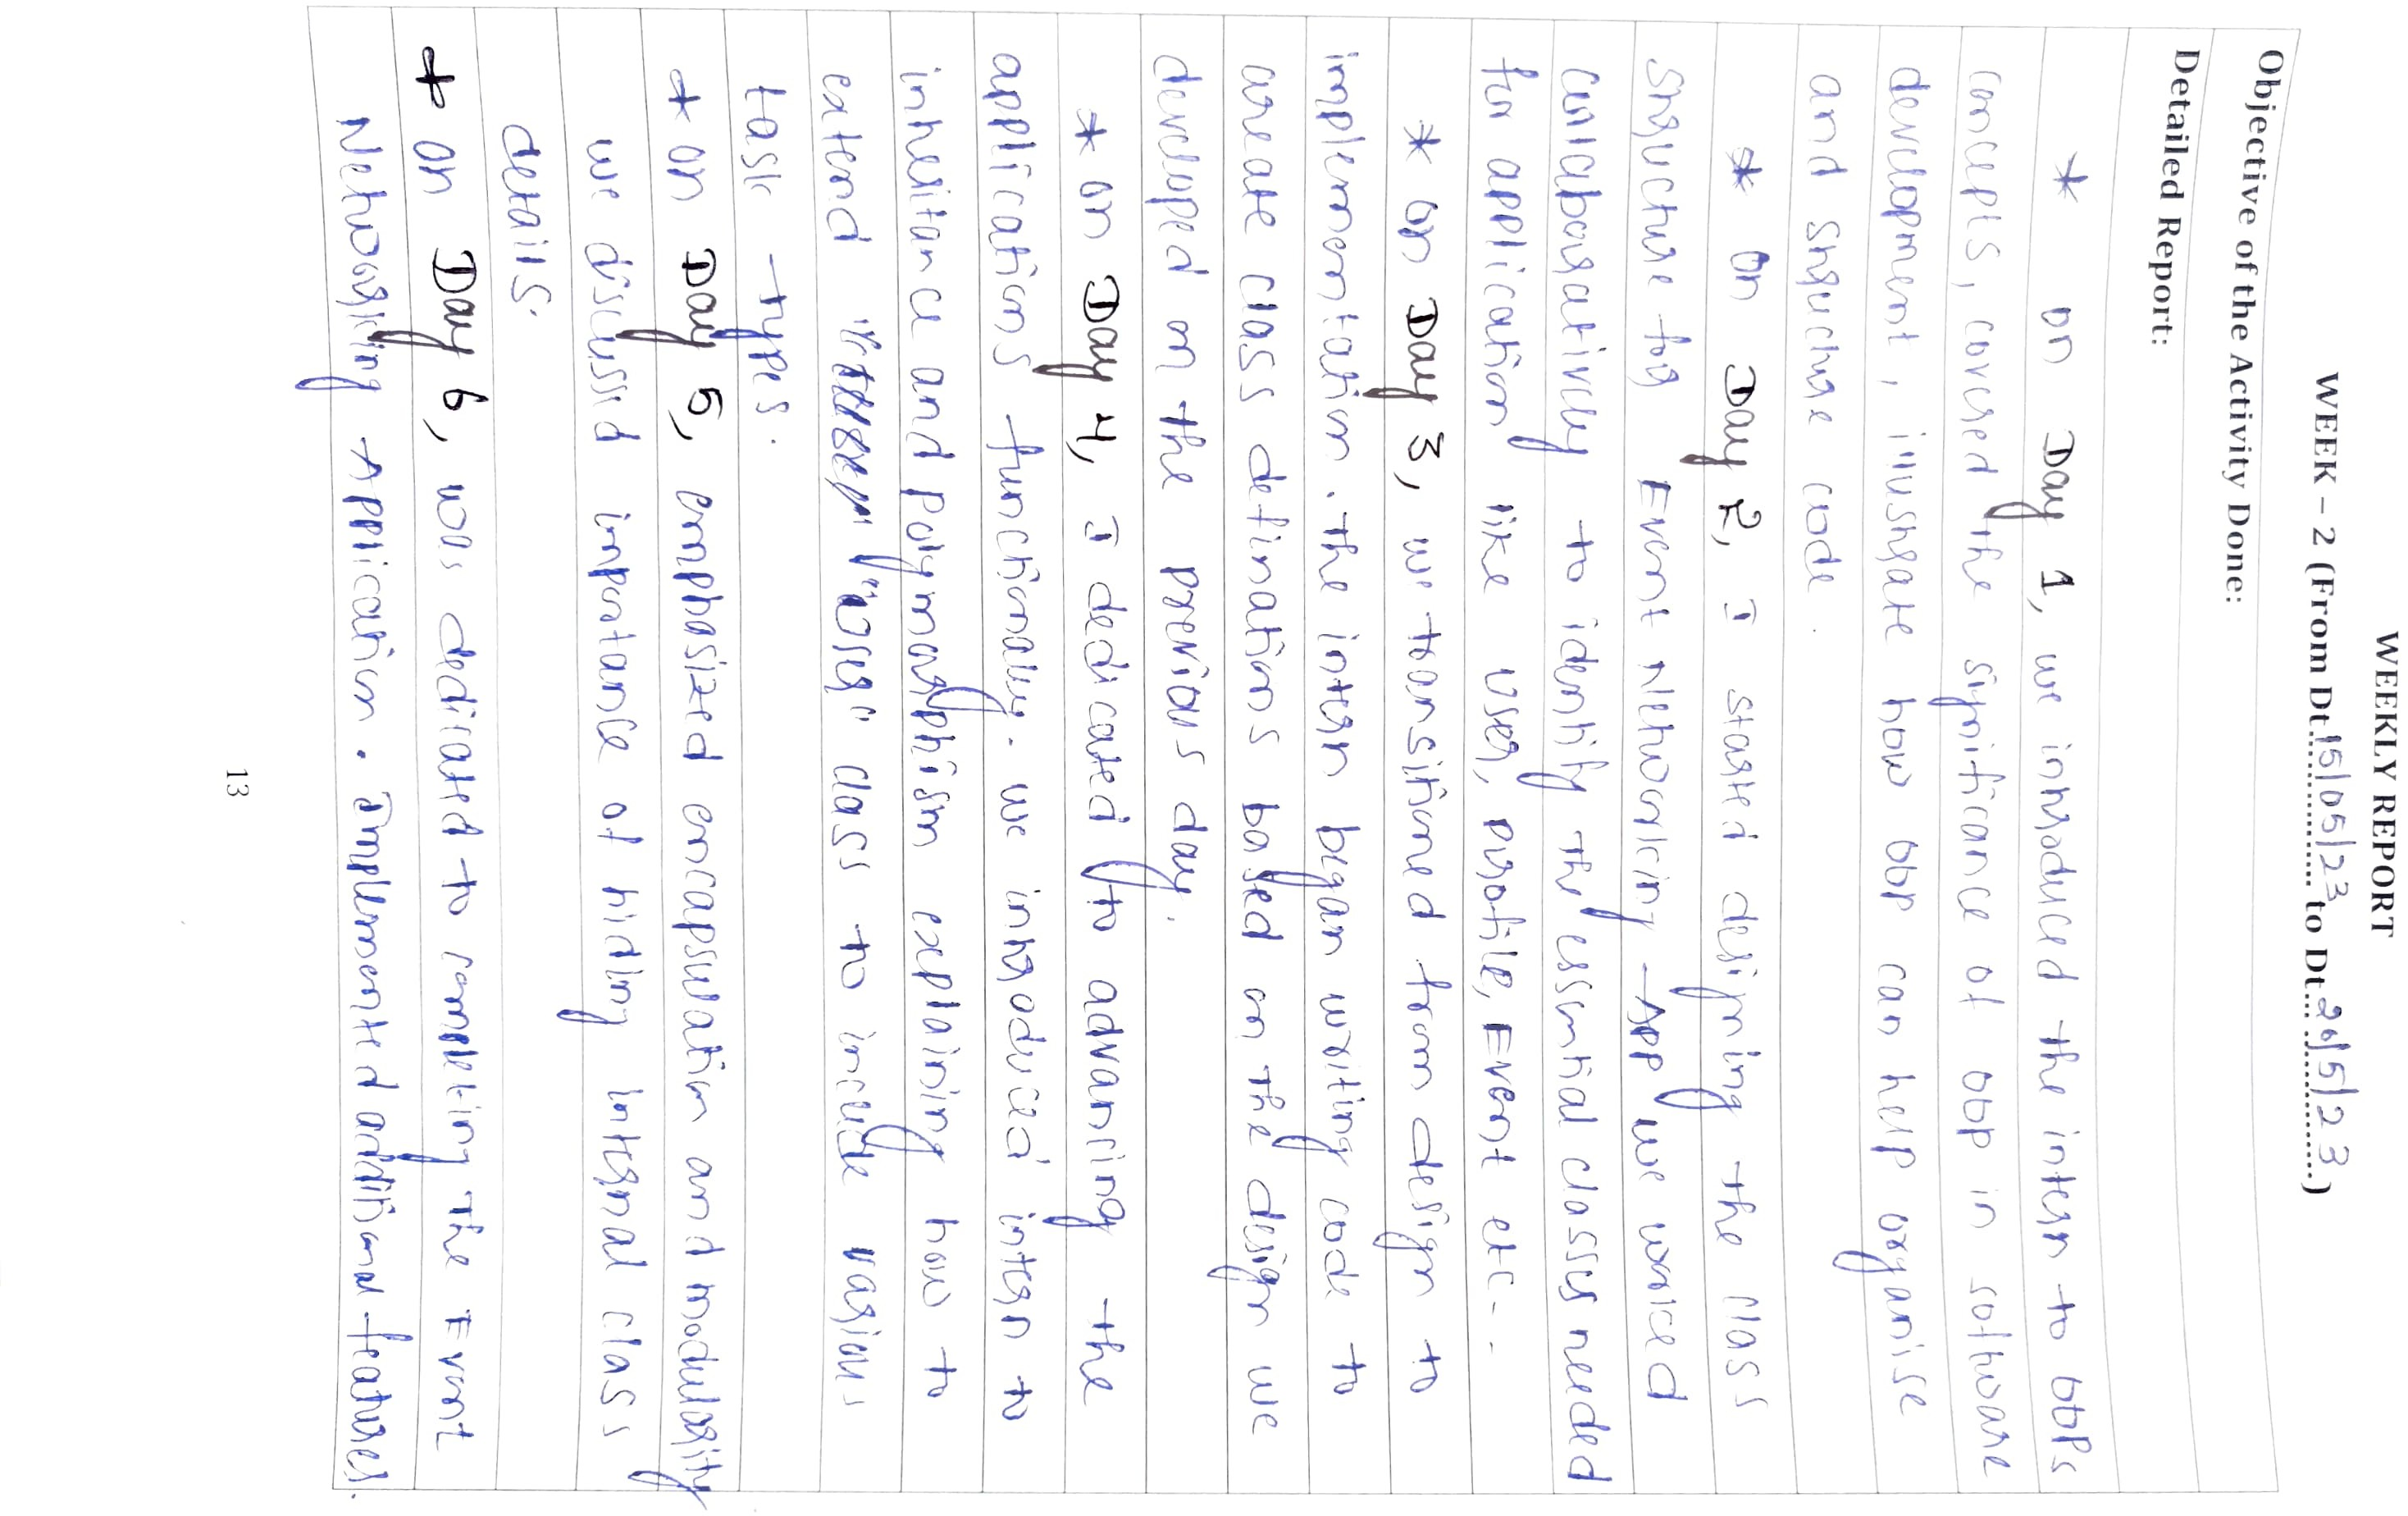 WEEKLY REPORT
WEEK – 2 (From Dt.15/05/23 to Dt.20/5/23)
Objective of the Activity Done:
Detailed Report:
* on Day 1, we introduced the intern to oops
concepts, covered the significance of oop in software
development, illustrate how oop can help organise
and structure code.
* on Day 2, I started designing the class
structure for Event Networking App we worked
collaboratively to identify the essential classes needed
for application like user, profile, Event etc..
* on Day 3, we transitioned from design to
implementation. the intern began writing code to
create class definations based on the design we
developed on the previous day.
* on Day 4, I dedicated to advancing the
applications functionally. we introduced intern to
inheritance and Polymorphism explaining how to
extend "user" class to include various
task types.
* on Day 5, emphasized encapsulation and modularity
we discussed importance of hiding internal class
details.
* on Day 6, was dedicated to completing the Event
Networking Application. Implemented additional features.
13